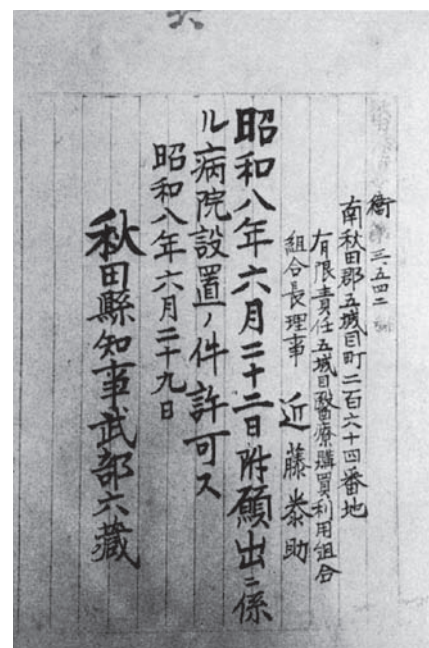 衛第三、五四二號
南秋田郡五城目町二百六十四番地
有限責任五城目醫療購買利用組合
組合長理事 近藤泰助
昭和八年六月二十二日附願出ニ係
ル病院設置ノ件許可ス
昭和八年六月二十九日
秋田縣知事武部六藏